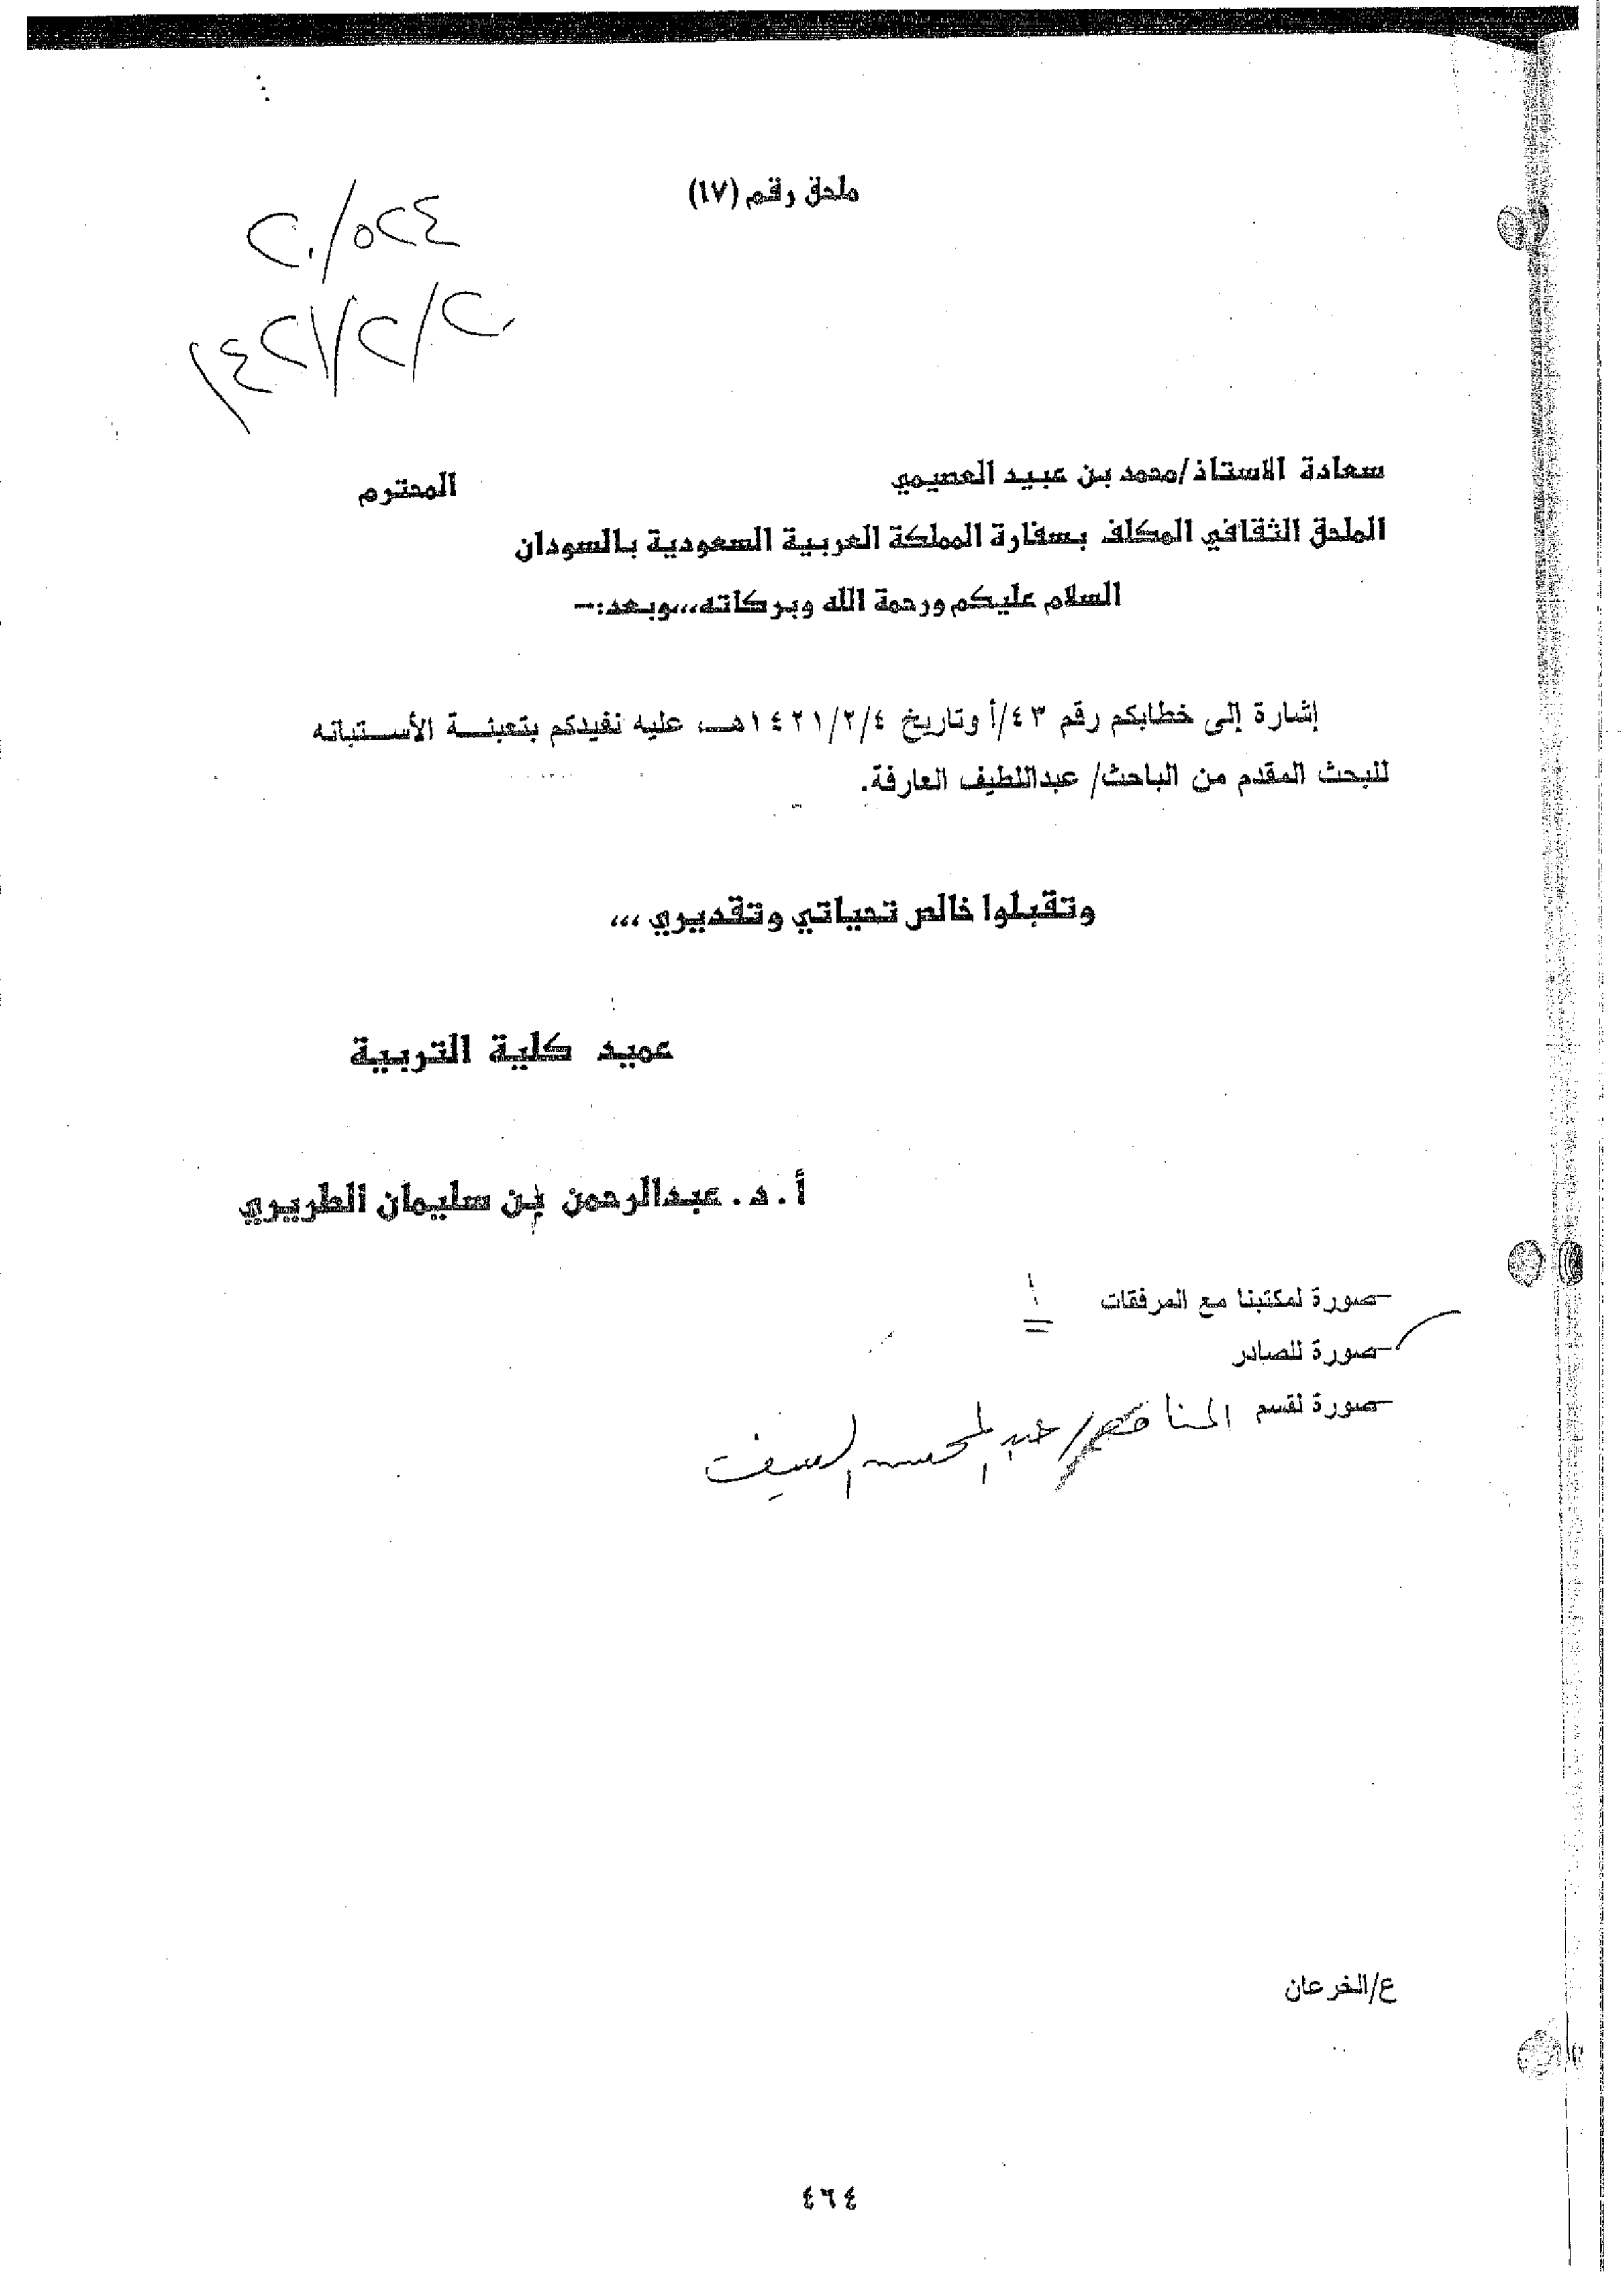 ملحق رقم (١٧)
٢٠/٥٢٤
١٤٢١/٢/٢٠
سعادة الاستاذ/محمد بن عبيد العصيمي المحترم
الملحق الثقافي المكلف بسفارة المملكة العربية السعودية بالسودان
السلام عليكم ورحمة الله وبركاته،،،وبعد:-
إشارة إلى خطابكم رقم ٤٣/أ وتاريخ ١٤٢١/٢/٤هـ، عليه نفيدكم بتعبئة الأستبانه
للبحث المقدم من الباحث/ عبداللطيف العارفة.
وتقبلوا خالص تحياتي وتقديري ،،،
عميد كلية التربية
أ.د. عبدالرحمن بن سليمان الطريري
-صورة لمكتبنا مع المرفقات
-صورة للصادر
-صورة لقسم المناهج/عبدالمحسن السيف
ع/الخرعان
٤٦٤